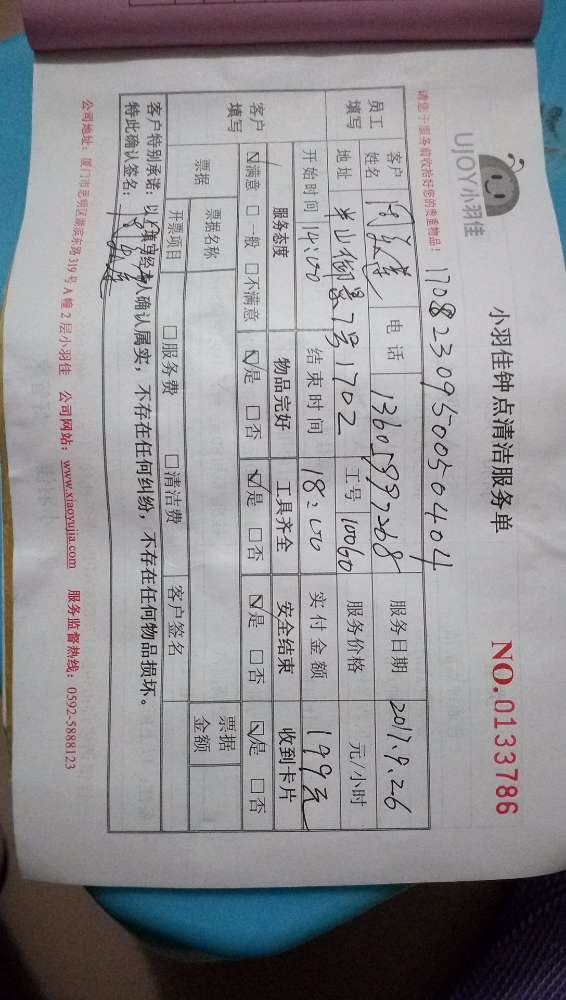 UJOY小羽佳
小羽佳钟点清洁服务单
NO.0133786
请您于服务前收拾好您的贵重物品！
1708230950050404
员工填写
客户姓名 电话 服务日期 2017.9.26
地址 半山御景7号1702 工号 10060 服务价格 元/小时
开始时间 14:00 结束时间 18:00 实付金额 199元
客户填写
服务态度 物品完好 工具齐全 安全结束 收到卡片
☑满意 □一般 □不满意 ☑是 □否 ☑是 □否 ☑是 □否 ☑是 □否
票据 票据名称 票据金额
开票项目 □服务费 □清洁费 客户签名
客户特别承诺：以上填写经本人确认属实，不存在任何纠纷，不存在任何物品损坏。
特此确认签名：
公司地址：厦门市思明区湖滨东路319号A幢2层小羽佳 公司网站：www.xiaoyujia.com 服务监督热线：0592-5888123